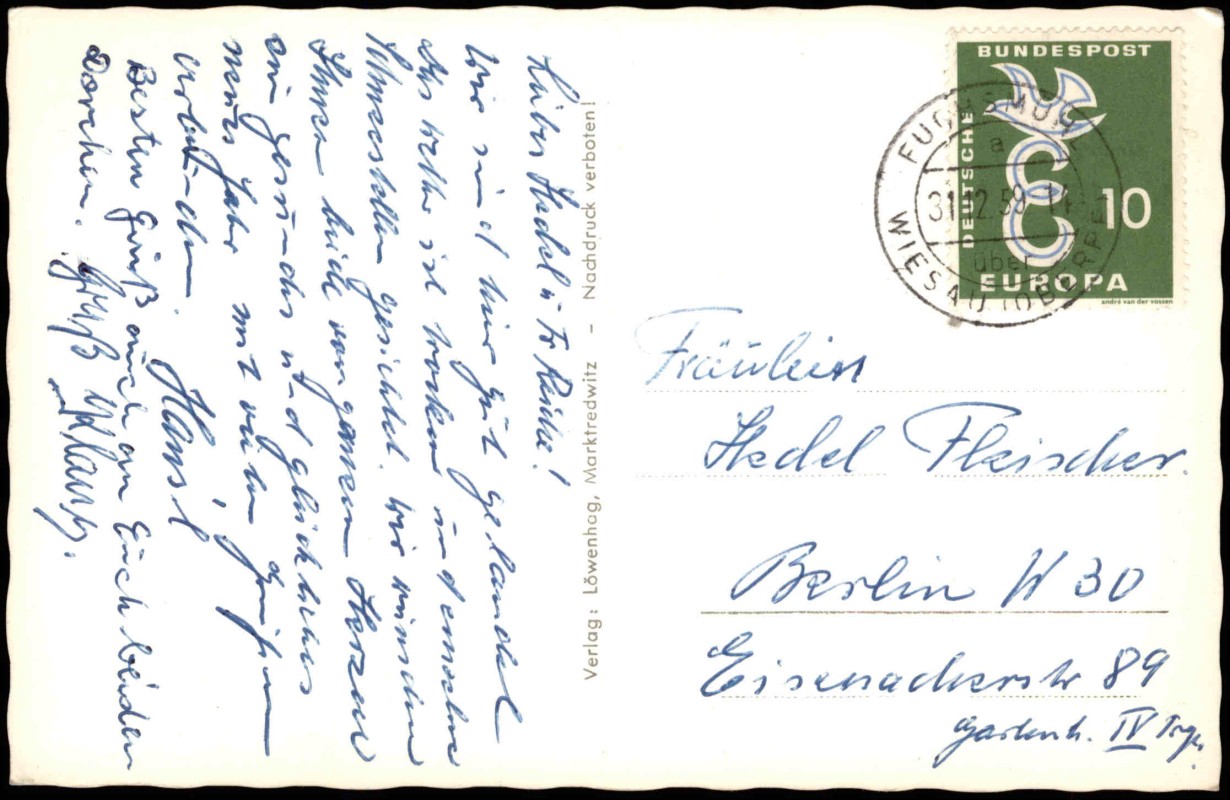 Liebes Hedel u. Fr
wir sind hier gut gelandet
das Wetter ist trocken und
Schneestellen gesichtet. Wir wünschen
Ihnen beide von ganzem Herzen
ein gesundes und glückliches
neues Jahr mit vielen Grüßen
verbunden
Hansil
Besten Gruß auch an Euch beiden
Dorchen. Gruß
Verlag: Löwenhag, Marktredwitz – Nachdruck verboten!
BUNDESPOST
DEUTSCHE
10
EUROPA
andré van der vossen
FUCHSMÜHL
a
31.12.59-14
über
WIESAU (OBERPF)
Fräulein
Hedel Fleischer.
Berlin W 30
Eisenacherstr 89
Gartenh. IV Trp.